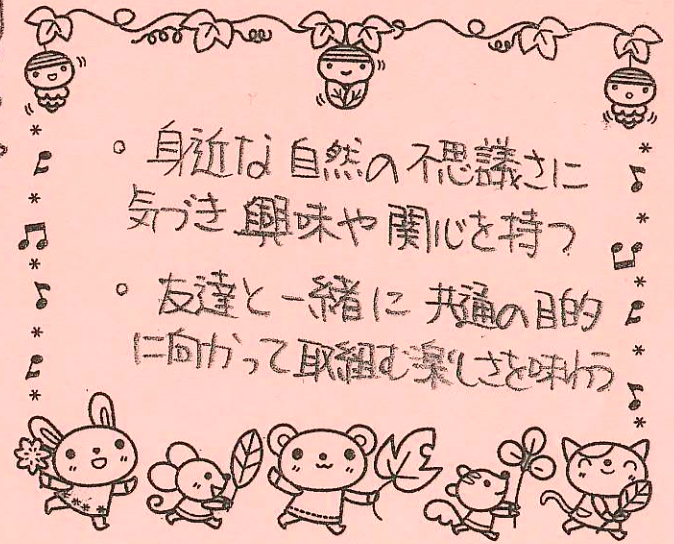 。身近な自然の不思議さに
気づき 興味や関心を持つ
。友達と一緒に 共通の目的
に向かって取組む楽しさを味わう